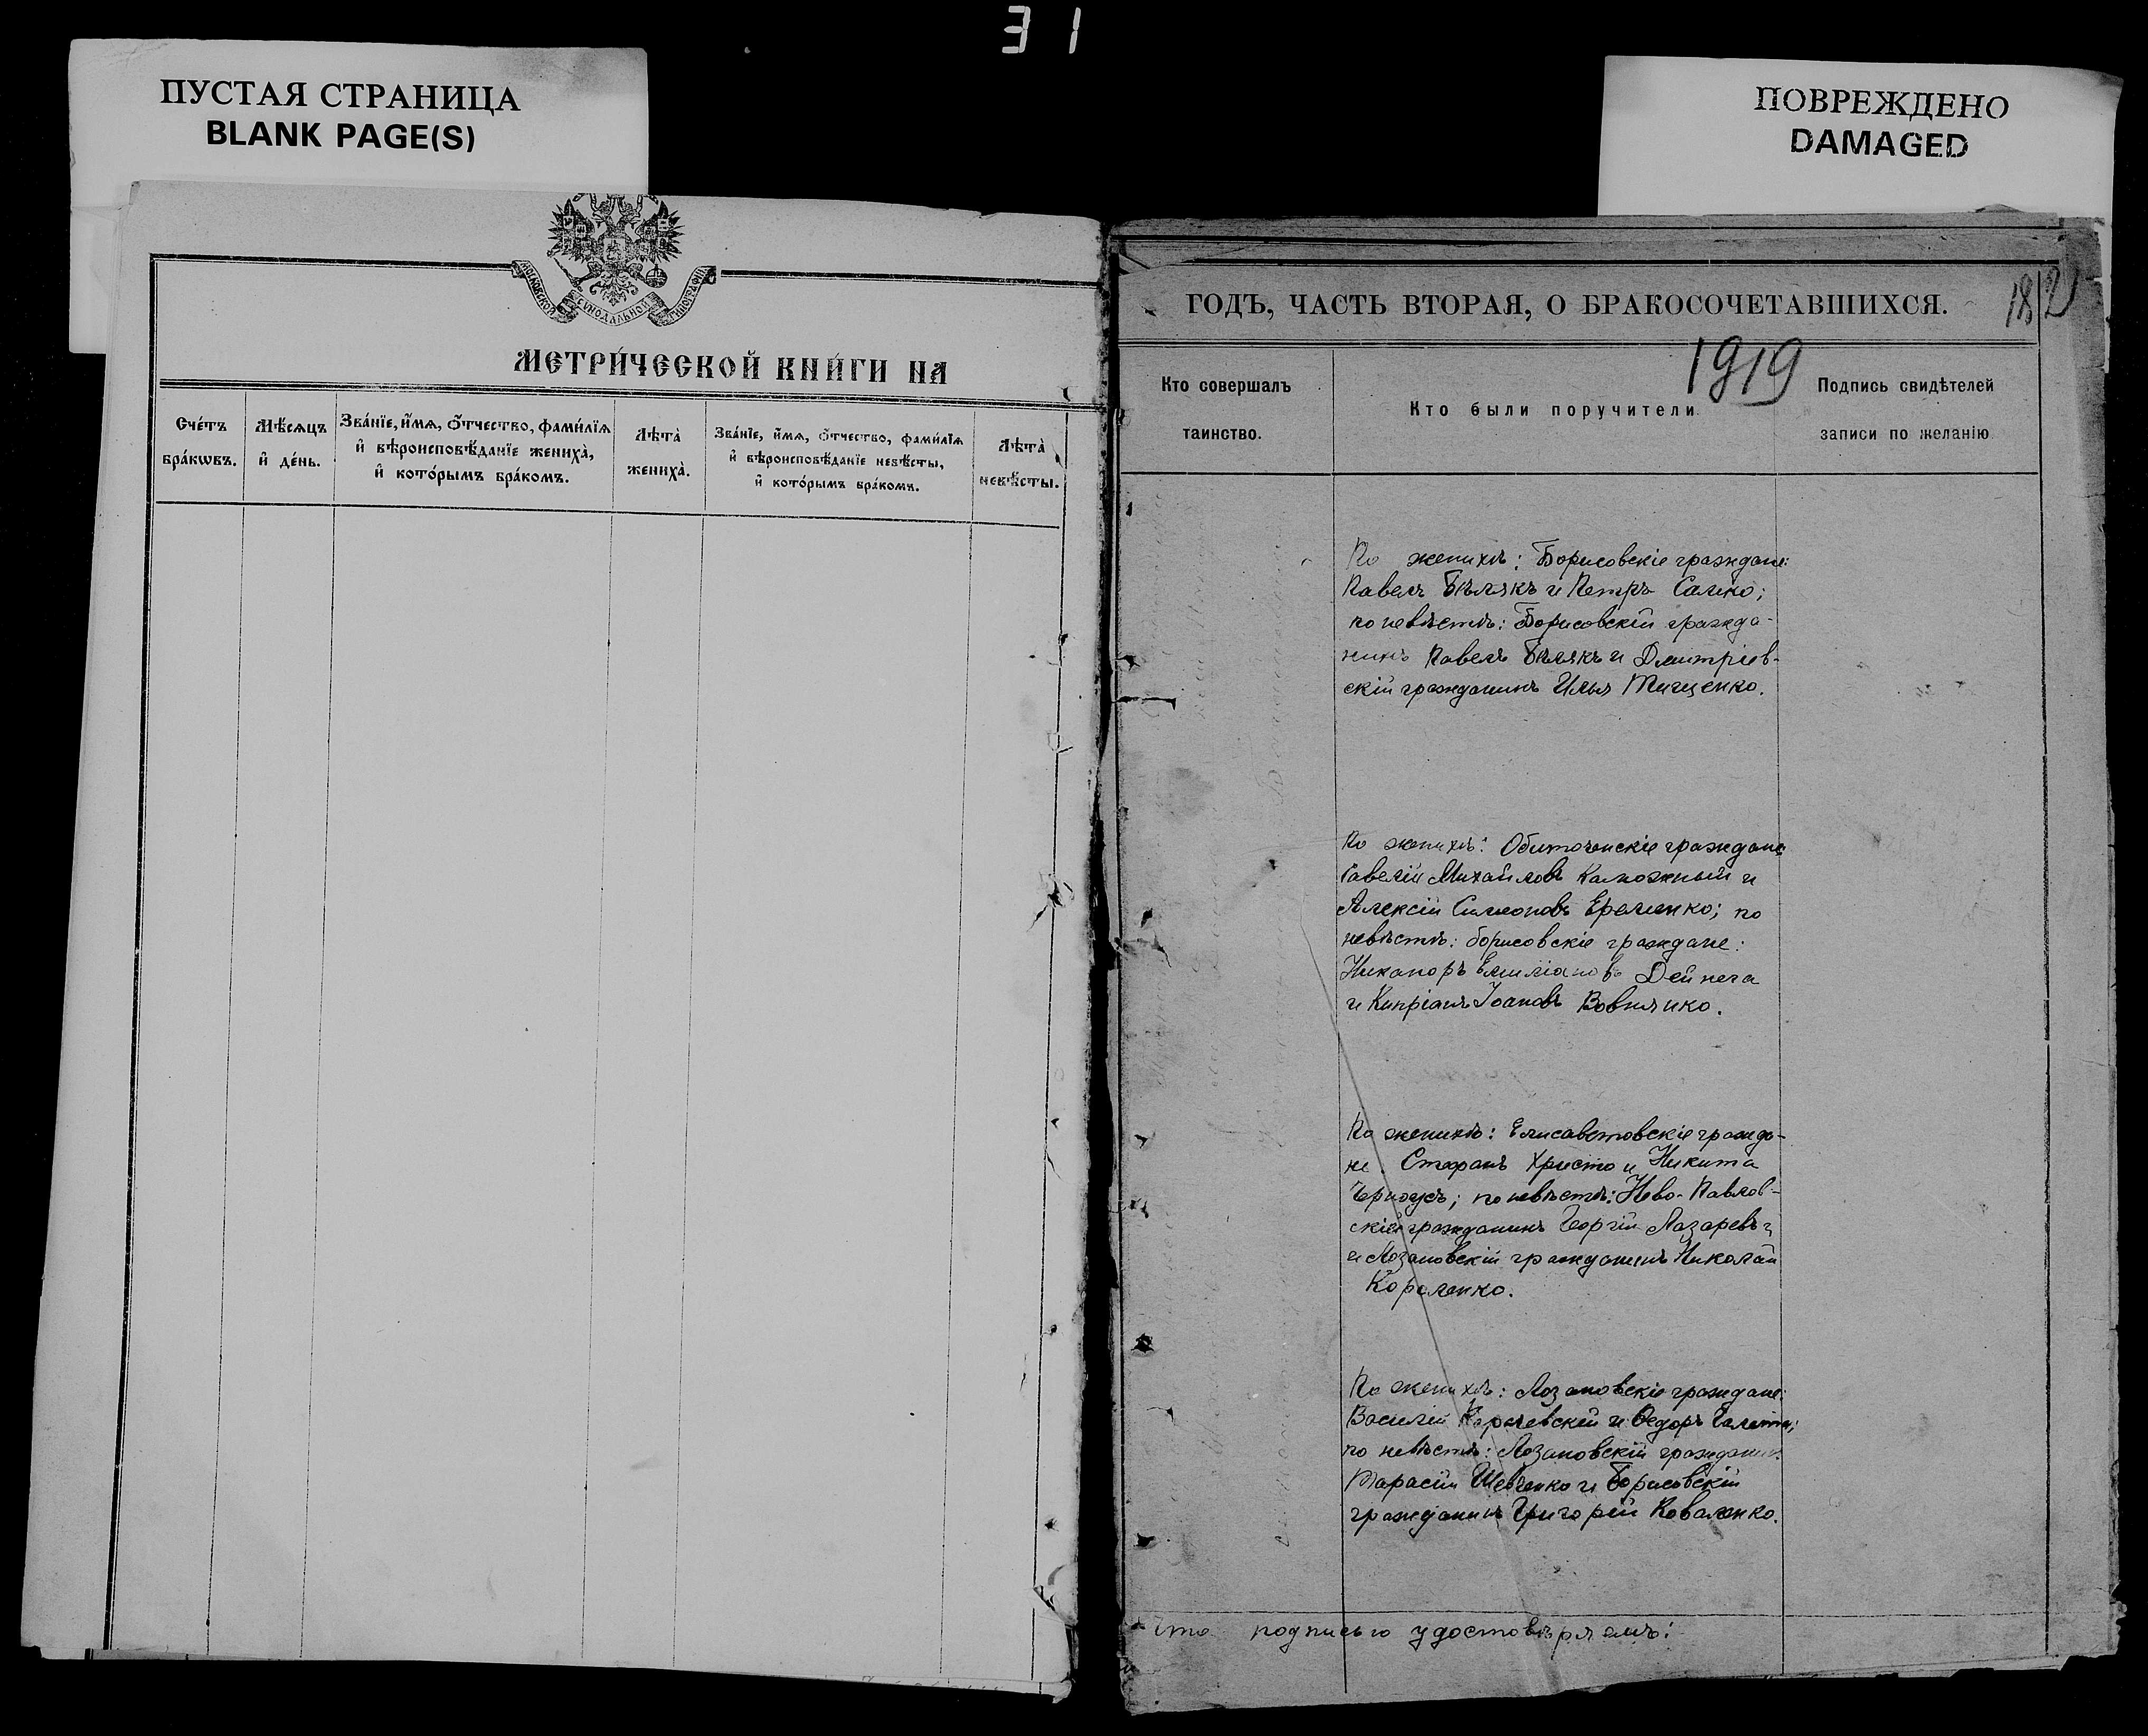 31
ПУСТАЯ СТРАНИЦА
BLANK PAGE(S)
ПОВРЕЖДЕНО
DAMAGED
МОСКОВСКОЙ СѴНОДАЛЬНОЙ ТИПОГРАФІИ
МЕТРИ́ЧЕСКОЙ КНИ́ГИ НА
Сче́тъ бра́кѡвъ.
Мѣ́сѧцъ и҆ де́нь.
Зва́нїе, и҆́мѧ, ѻ҆́тчество, фами́лїѧ
и҆ вѣроисповѣ́данїе женихà,
и҆ кото́рымъ бра́комъ.
Лѣта̀ женихà.
Зва́нїе, и҆́мѧ, ѻ҆́тчество, фами́лїѧ
и҆ вѣроисповѣ́данїе невѣ́сты,
и҆ кото́рымъ бра́комъ.
Лѣта̀ невѣ́сты.
ГОДЪ, ЧАСТЬ ВТОРАЯ, О БРАКОСОЧЕТАВШИХСЯ.
182
1919
Кто совершалъ
таинство.
Кто были поручители
Подпись свидѣтелей
записи по желанію
По женихѣ: Борисовскіе граждане:
Павелъ Бѣлякъ и Петръ Салко;
по невѣстѣ: Борисовскій гражда-
нинъ Павелъ Бѣлякъ и Дмитріев-
скій гражданинъ Илья Тищенко.
По женихѣ: Обиточенскіе граждане
Савелій Михайловъ Каможный и
Алексій Симеоновъ Еременко; по
невѣстѣ: борисовскіе граждане:
Никаноръ Емиліановъ Дейнега
и Кипріанъ Іоановъ Вовнянко.
По женихѣ: Елисаветовскіе гражда-
не. Стефанъ Христо и Никита
Черноусъ; по невѣстѣ: Ново-Павлов-
скій гражданинъ Георгій Лазаревъ
и Лозановскій гражданинъ Николай
Короленко.
По женихѣ: Лозановскіе граждане:
Василій Карачевскій и Ѳедоръ Галета;
по невѣстѣ: Лозановскій гражданинъ
Тарасій Шевченко и Борисовскій
гражданинъ Григорій Коваленко.
Что подписью удостовѣряемъ: